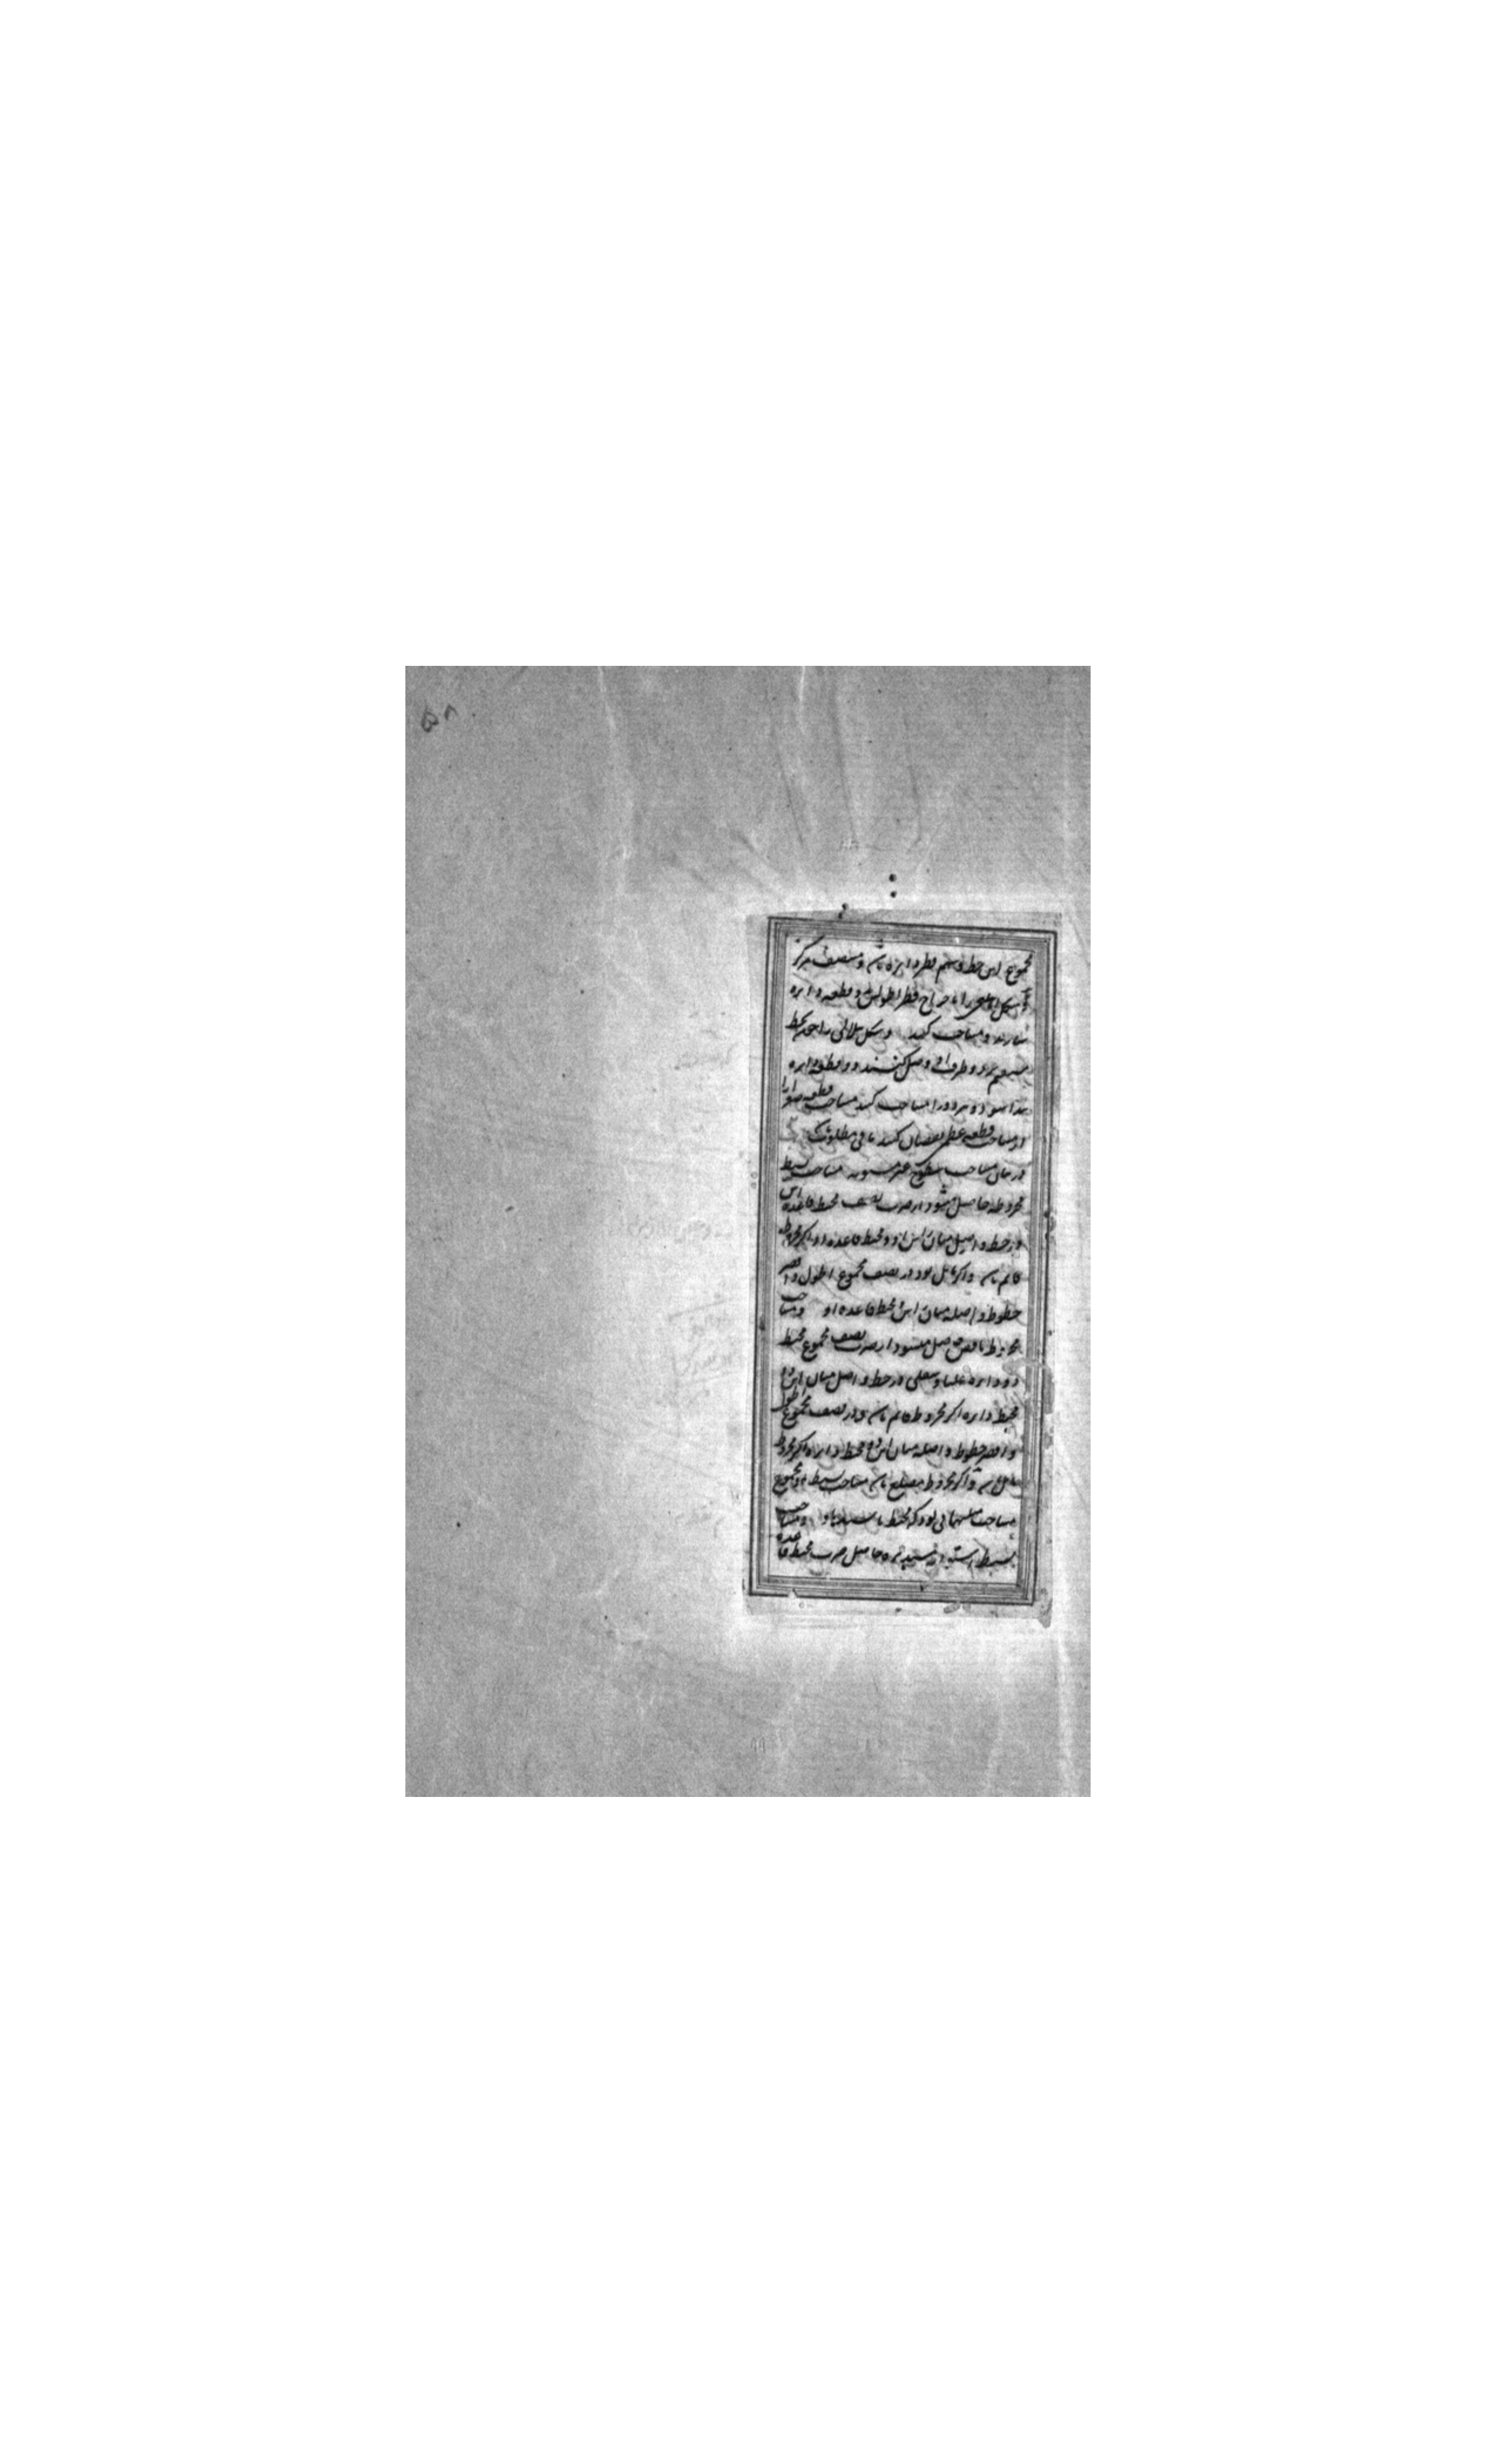 ۵۸
مجموع این خط و سهم قطر دایره باشد و منتصف مرکز
و شکل اهلیلجی را باخراج قطر اطولش دو قطعه دایره
سازند و مساحت کنند و شکل هلالی را خط
مستقیم بر دو طرف او وصل کنند دو قطعه دایره
پیدا شود و هر دو را مساحت کنند مساحت قطعه صغری را
از مساحت قطعه عظمی نقصان کنند باقی مطلوبست
در بیان مساحت سطوح غیر مستویه مساحت بسیط
مخروط حاصل شود از ضرب نصف محیط قاعده
در خط واصل میان رأس او و محیط قاعده او اگر مخروط
قائم باشد و اگر مایل بود در نصف مجموع اطول و اقصر
خطوط واصله میان رأس و محیط قاعده او و مساحت
مخروط ناقص حاصل میشود از ضرب نصف مجموع محیط
دو دایره علیا و سفلی در خط واصل میان این دو
محیط دایره اگر مخروط قائم باشد و در نصف مجموع اطول
و اقصر خطوط واصله میان این دو محیط دایره اگر مخروط
مایل باشد و اگر مخروط مضلع باشد مساحت بسیط او مجموع
مساحت مثلثهائی بود که محیط باشند باو و مساحت
بسیط اسطوانه مستدیره حاصل ضرب محیط قاعده